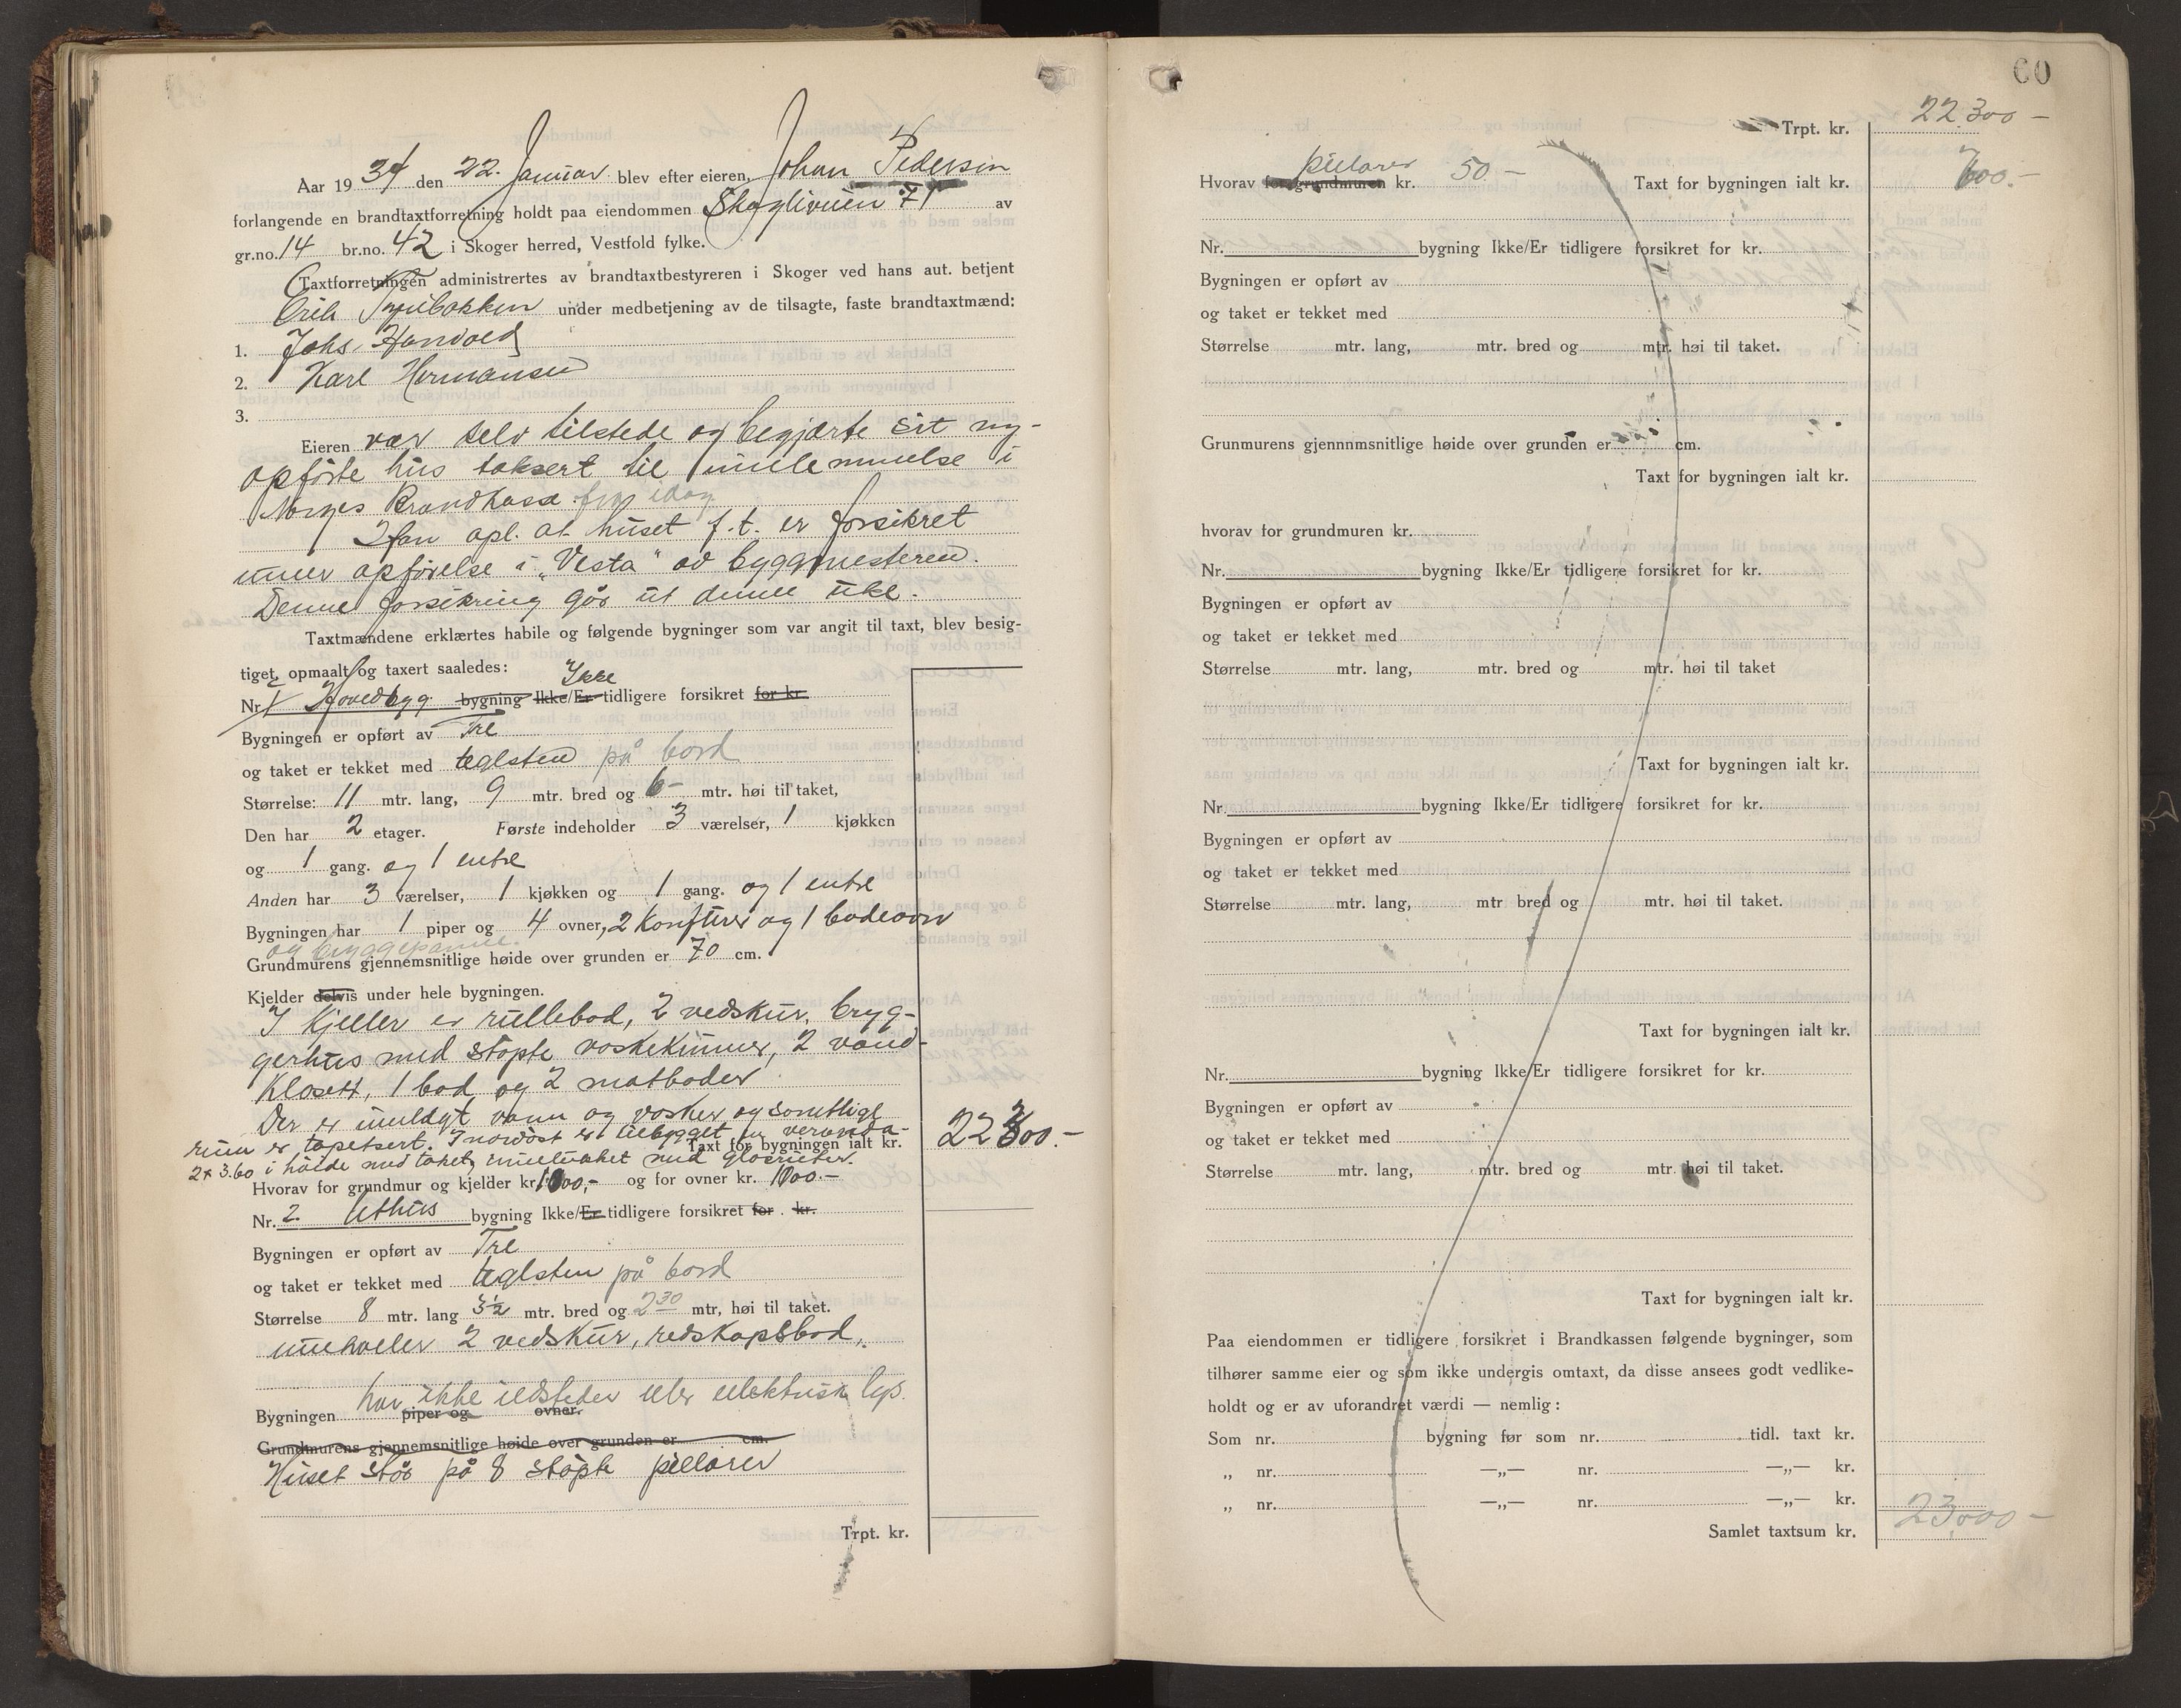 Aar 1934 den 22. Januar blev efter eieren, Johan Pedersen
forlangende en brandtaxtforretning holdt paa eiendommen Skogliveien 71 av
gr.no. 14 br.no. 42 i Skoger herred, Vestfold fylke.
Taxtforretningen administrertes av brandtaxtbestyreren i Skoger ved hans aut. betjent
under medbetjening av de tilsagte, faste brandtaxtmænd:
1. Johs. Hanvold
2. Karl Hermansen
3.
Eieren var selv tilstede og begjærte sit ny-
opførte hus taksert til innlemmelse i
Norges Brandkasse fra idag
Han opl. at huset f.t. er forsikret
unner opførelse i „Vesta" av byggmesteren.
Denne forsikring går ut denne uke.
Taxtmændene erklærtes habile og følgende bygninger som var angit til taxt, blev besig-
tiget, opmaalt og taxert saaledes:
Nr. 1 Hovedbygg bygning Ikke/Er Ikke tidligere forsikret for kr.
Bygningen er opført av Tre
og taket er tekket med teglsten på bord
Størrelse: 11 mtr. lang, 9 mtr. bred og 6- mtr. høi til taket,
Den har 2 etager. Første indeholder 3 værelser, 1 kjøkken
og 1 gang. og 1 entre
Anden har 3 værelser, 1 kjøkken og 1 gang. og 1 entre
Bygningen har 1 piper og 4 ovner, 2 Komfurer og 1 badeovn
og bryggepanne.
Grundmurens gjennemsnitlige høide over grunden er 70 cm.
Kjelder delvis under hele bygningen.
I Kjeller er rullebod, 2 vedskur, bryg-
gerhus med støpte vaskekummer, 2 vand-
Klosett, 1 bad og 2 matboder
Der er innlagt vann og vasker og samtlige
rum er tapetsert. I nordøst er tilbygget en veranda-
2 x 3.60 i høide med taket, innelukket med glasruter.
Taxt for bygningen ialt kr. 22300.-
Hvorav for grundmur og kjelder kr. 1000,- og for ovner kr. 1000.-
Nr. 2. Uthus bygning Ikke/Er tidligere forsikret for kr.
Bygningen er opført av Tre
og taket er tekket med teglsten på bord
Størrelse 8 mtr. lang 3½ mtr. bred og 2 30 mtr, høi til taket.
inneholder 2 vedskur, redskapsbod,
har ikke ildsteder eller elektrisk lys.
Bygningen piper og ovner.
Grundmurens gjennemsnitlige høide over grunden er cm.
Huset står på 8 støpte pillarer
Trpt. kr.
60
Trpt. kr. 22300-
Hvorav for grundmuren pillarer kr. 50- Taxt for bygningen ialt kr. 700.-
Nr. bygning Ikke/Er tidligere forsikret for kr.
Bygningen er opført av
og taket er tekket med
Størrelse mtr. lang, mtr. bred og mtr. høi til taket.
Grunmurens gjennnmsnitlige høide over grunden er cm.
Taxt for bygningen ialt kr.
hvorav for grundmuren kr.
Nr. bygning Ikke/Er tidligere forsikret for kr.
Bygningen er opført av
og taket er tekket med
Størrelse mtr. lang, mtr. bred og mtr. høi til taket
Taxt for bygningen ialt kr.
Nr. bygning Ikke/Er tidligere forsikret for kr.
Bygningen er opført av
og taket er tekket med
Størrelse mtr. lang, mtr bred og mtr. høi til taket.
Taxt for bygningen ialt kr.
Nr. bygning Ikke/Er tidligere forsikret for kr.
Bygningen er opført av
og taket er tekket med
Størrelse mtr. lang, mtr. bred og mtr. høi til taket.
Taxt for bygningen ialt kr.
Paa eiendommen er tidligere forsikret i Brandkassen følgende bygninger, som
tilhører samme eier og som ikke undergis omtaxt, da disse ansees godt vedlike-
holdt og er av uforandret værdi — nemlig:
Som nr. bygning før som nr. tidl. taxt kr.
„ nr. —„— nr. —„— kr.
„ nr. —„— nr. —„— kr.
Samlet taxtsum kr. 23000-